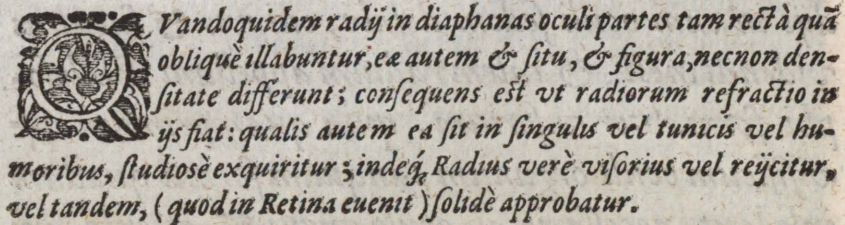 QVandoquidem radij in diaphanas oculi partes tam rectà quā
obliquè illabuntur, eæ autem & ſitu, & figura, necnon den-
ſitate differunt; conſequens eſt vt radiorum refractio in
ijs fiat: qualis autem ea ſit in ſingulis vel tunicis vel hu-
moribus, ſtudiosè exquiritur; indeq́; Radius verè viſorius vel reijcitur,
vel tandem, (quod in Retina euenit) ſolidè approbatur.